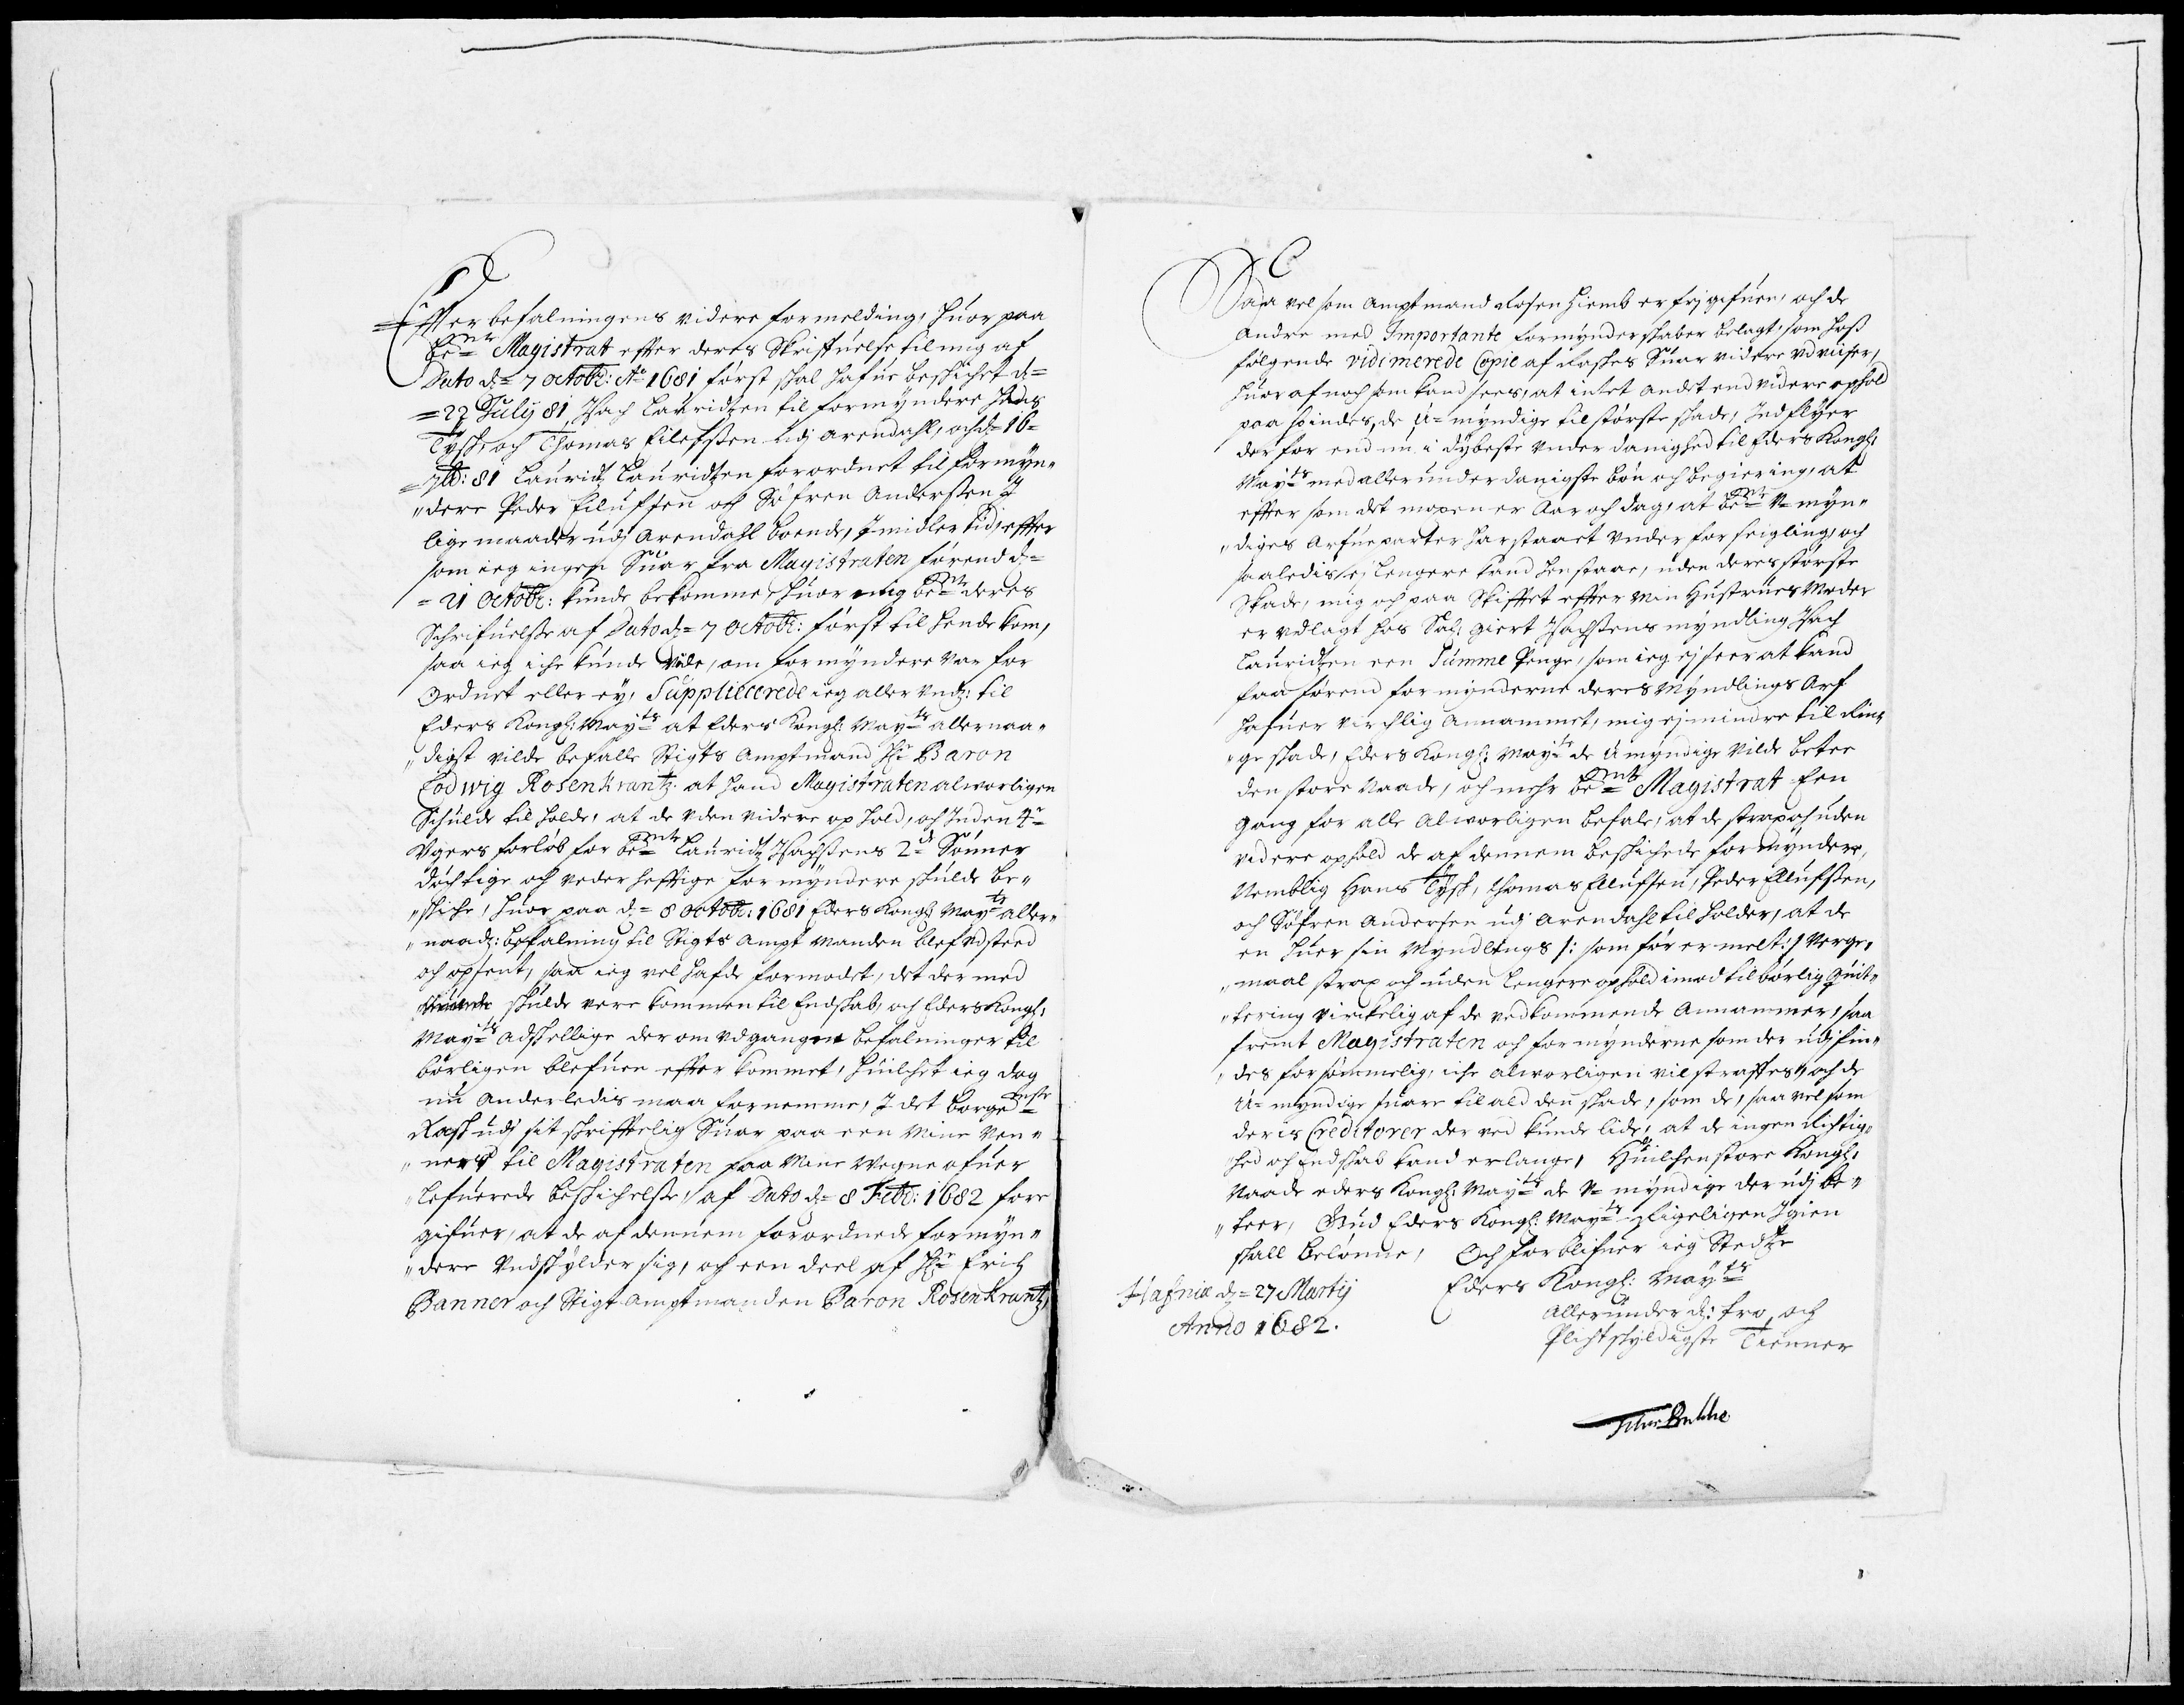 Effter befalningens videre formelding, huor paa
bem:te Magistrat effter deres Skrifvelse til mig af
Dato d: 7 Octobr: Ao 1681 først skal hafue beskichet d:=
=22 July 81 Isach Lauridtzen til formyndere Hans
Tysk, och Thomas Eilefssen udj Arendahl, och d: 16=
=7br: 81 Lauridtz Lauridtzen forordnet til formyn"
"dere Peder Eiluffsen och Søfren Anderssen I
lige maader udj Arendahl boende, Imidlertid, effter
som ieg ingen Suar fra Magistraten førend d:=
=21 Octobr: kunde bekomme, huor mig bem:te deres
Schrifuelsse af Dato d: 7 Octobr: først til hende kom,
saa ieg iche kunde vide, om formyndere var for
Ordnet eller ey, Supplicerede ieg aller und: til
Eders Kongl: Mayts at Eders Kongl: Mayts allernaa"
"digst vilde befalle Stigts Amptmand Hr Baron
Lodwig Rosenkrantz at hand Magistraten alvorligen
Schulde til holde, at de uden videre ophold, och Inden 4re
Ugers forløb for bem:te Lauridtz Isachssens 2de Sønner
døchtige och vederhefftige formyndere skulde be"
"skiche, huor paa d: 8 Octobr: 1681 Eders Kongl: Mayts aller"
"naad: befalning til Stigts Amptmanden blef udsteed
och opsent, saa ieg vel hafde formodet, det der med
skulde vere kommen til Endskab, och Eders Kongl:
Mayts adskellige der om udgangne befalninger til
børligen blefuen effter kommet, huilchet ieg dog
nu anderledis maa fornemme, I det borgemeste
Rask udj sit skrifftelig Suar paa een mine Ven"
"ners til Magistraten paa mine Vegne ofuer
lefuerede beskichelsse, af Dato d: 8 Febr: 1682 fore
gifuer, at de af dennem forordnede formyn"
"dere Undskylder sig, och een deel af Hr Erich
Banner och Stigt Amptmanden Baron Rosenkrantz,
Saa vel som Amptmand Rosenhiemb er frj gifuen, och de
andre med Importante formynderskaber belagt, som hoß
følgende vidimerede Copie af Raskes Suar videre udviiser,
huor af noch som kand sees, at intet andet end videre ophold
paa findes, de U=myndige til største skade, Indflyer
der for end nu i dybeste underdanighed til Eders Kongl:
Mayts med allerunderdanigste bøn och begiering, at
effter som det mesten er Aar och dag, at bem:te U=myn"
"diges Arfueparter har staaet under forseigling, och
saaledis ej lengere kand henstaae, uden deres største
Skade, mig och paa Skifftet effter min Hustrues Moder
er udlagt hos Sal: Giert Isachssens myndling Isach
Lauridtzen een Summe Penge, som ieg ej seer at kand
faa førend formynderne deres Myndlings Arf
hafuer virchlig Annammet, mig ej mindre til Rin"
"ge skade, Eders Kongl: Mayts de Umyndige vilde betee
den store Naade, och mehr bem:te Magistrat Een
gang for alle alvorligen befale, at de strax och uden
videre ophold de af dennem beskichede formyndere,
Nemblig Hans Tysk, Thomas Ellufsen, Peder Ellufssen,
och Søfren Andersen udj Arendahl til holder, at de
en huer sin Myndlings /: som før er melt :/ Verge"
"maal strax och uden lengere ophold imod tilbørlig Quit"
"tering virckelig af de vedkommende Annammer, saa
fremt Magistraten och formynderne som der udj fin"
"des forsømmelig, iche alvorligen vil straffes, och de
U=myndige suare til ald den skade, som de, saa vel som
deris Creditorer der ved kunde lide, at de ingen Richtig"
"hed och Endskab kand erlange, Huilchen store Kongl:
Naade Eders Kongl: Mayts de U=myndige der udj be"
"teer, Gud Eders Kongl: Mayts Rigeligen Igien
skall belønne, Och forblifuer ieg Stedtze
Hafniæ d: 27 Martij
Anno 1682.
Eders Kongl: Mayts
allerunderd: tro och
Plichtskyldigste Tienner